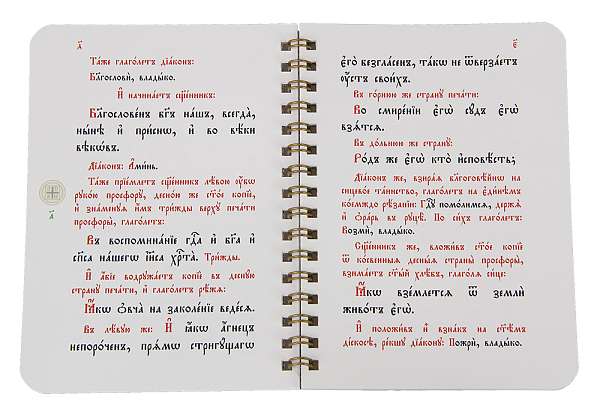 а҃
Та́же глаго́летъ дїа́конъ:
Бл҃гословѝ, влады́ко.
И҆ начина́етъ сщ҃е́нникъ:
Бл҃гослове́нъ бг҃ъ на́шъ, всегда̀,
ны́нѣ и҆ при́снѡ, и҆ во вѣ́ки
вѣкѡ́въ.
Дїа́конъ: А҆ми́нь.
Та́же прїе́млетъ сщ҃е́нникъ лѣ́вою ᲂу҆́бѡ
рꙋко́ю просфорꙋ̀, десно́ю же ст҃о́е копїѐ,
и҆ зна́менꙋѧ и҆́мъ три́жды верхꙋ̀ печа́ти
просфоры̀, глаго́летъ:
а҃
Въ воспомина́нїе гдⷭ҇а и҆ бг҃а и҆
сп҃са на́шегѡ і҆и҃са хрⷭ҇та̀. Три́жды.
И҆ а҆́бїе водрꙋжа́етъ копїѐ въ деснꙋ́ю
странꙋ̀ печа́ти, и҆ глаго́летъ рѣ́жѧ:
Ꙗ҆́кѡ ѻ҆вча̀ на заколе́нїе веде́сѧ.
Въ лѣ́вꙋю же: И҆ ꙗ҆́кѡ а҆́гнецъ
непоро́ченъ, прѧ́мѡ стригꙋ́щагѡ
є҃
є҆го̀ безгла́сенъ, та́кѡ не ѿверза́етъ
ᲂу҆́стъ свои́хъ.
Въ го́рнюю же странꙋ̀ печа́ти:
Во смире́нїи є҆гѡ̀ сꙋ́дъ є҆гѡ̀
взѧ́тсѧ.
Въ до́льнюю же странꙋ̀:
Ро́дъ же є҆гѡ̀ кто̀ и҆сповѣ́сть;
Дїа́конъ же, взира́ѧ бл҃гоговѣ́йнѡ на
сицево́е та́инство, глаго́летъ на є҆ди́нѣмъ
ко́емждо рѣ́занїи: Гдⷭ҇ꙋ помо́лимсѧ, держѧ̀
и҆ ѻ҆ра́рь въ рꙋцѣ̀. По си́хъ глаго́летъ:
Возмѝ, влады́ко.
Сщ҃е́нникъ же, вложи́въ ст҃о́е копїѐ
ѿ ко́свенныѧ десны́ѧ страны̀ просфоры̀,
взима́етъ ст҃ы́й хлѣ́бъ, глаго́лѧ си́це:
Ꙗ҆́кѡ взе́млетсѧ ѿ землѝ
живо́тъ є҆гѡ̀.
И҆ положи́въ и҆̀ взна́къ на ст҃ѣ́мъ
ді́скосѣ, ре́кшꙋ дїа́конꙋ: Пожрѝ, влады́ко.